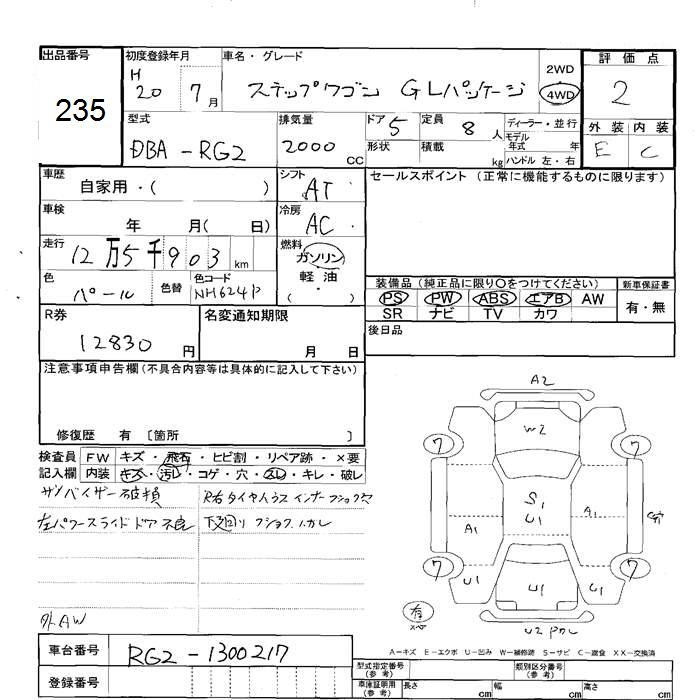 出品番号
235
初度登録年月
H
20 7月
車名・グレード
ステップワゴン GLパッケージ
2WD
4WD
評価点
2
外装 内装
E C
型式
DBA-RG2
排気量
2000 cc
ドア 5
形状
定員 8 人
積載 kg
ディーラー・並行
モデル
年式 年
ハンドル 左・右
車歴
自家用・( )
シフト
AT
車検
年 月( 日)
冷房
AC
走行
12万5千903 km
燃料
ガソリン
軽油
( ・ )
色
パール
色替
色コード
NH624P
セールスポイント (正常に機能するものに限ります)
装備品 (純正品に限り○をつけてください)
PS PW ABS エアB AW
SR ナビ TV カワ
新車保証書
有・無
後日品
R券
12830 円
名変通知期限
月 日
注意事項申告欄(不具合内容等は具体的に記入して下さい)
修復歴 有 〔箇所 〕
検査員
記入欄
FW キズ・飛石・ヒビ割・リペア跡・×要
内装 キズ・汚れ・コゲ・穴・スレ・キレ・破レ
サンバイザー破損
左パワースライドドア不良
下廻り
外AW
A2
W2
7 7
S1
U1
A1 A1
7 7
U1 U1 C1
有
U2
A=キズ E=エクボ U=凹み W=補修跡 S=サビ C=腐食 XX=交換済
車台番号
RG2-1300217
登録番号
型式指定番号
(参考)
類別区分番号
(参考)
車庫証明用
(参考)
長さ cm
幅 cm
高さ cm